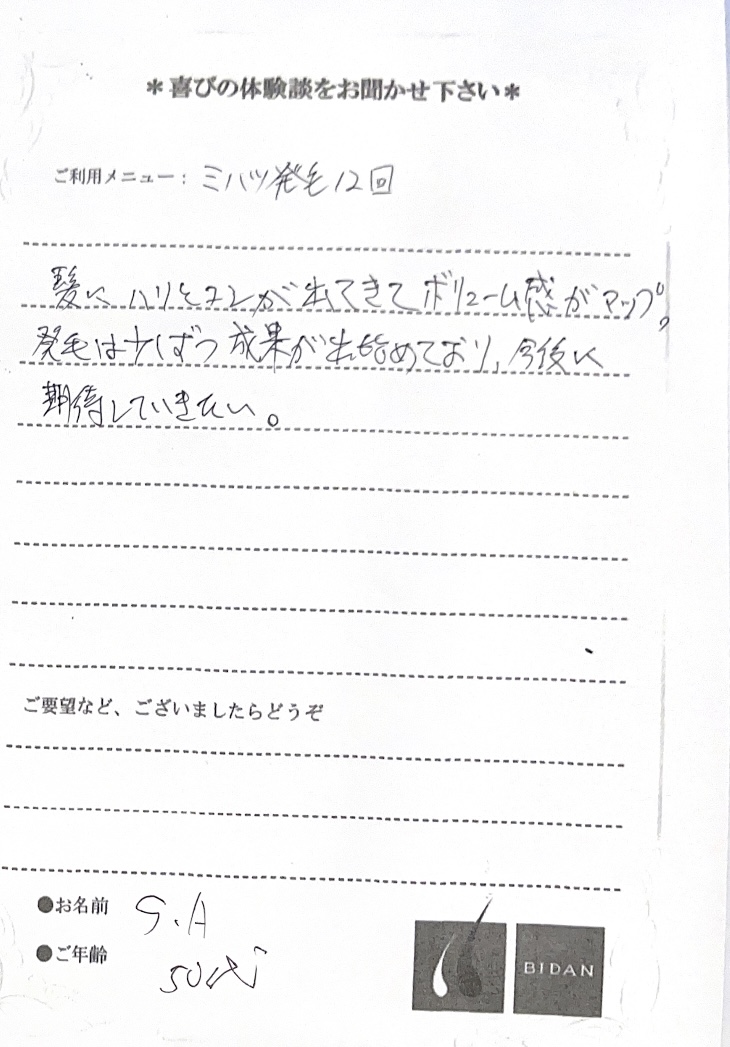 ＊喜びの体験談をお聞かせ下さい＊
ご利用メニュー：ミバツ発毛12回
髪にハリとコシが出てきてボリューム感がアップ。
発毛は少しずつ成果が出始めており、今後に
期待していきたい。
ご要望など、ございましたらどうぞ
●お名前 S.A
●ご年齢 50代
BIDAN